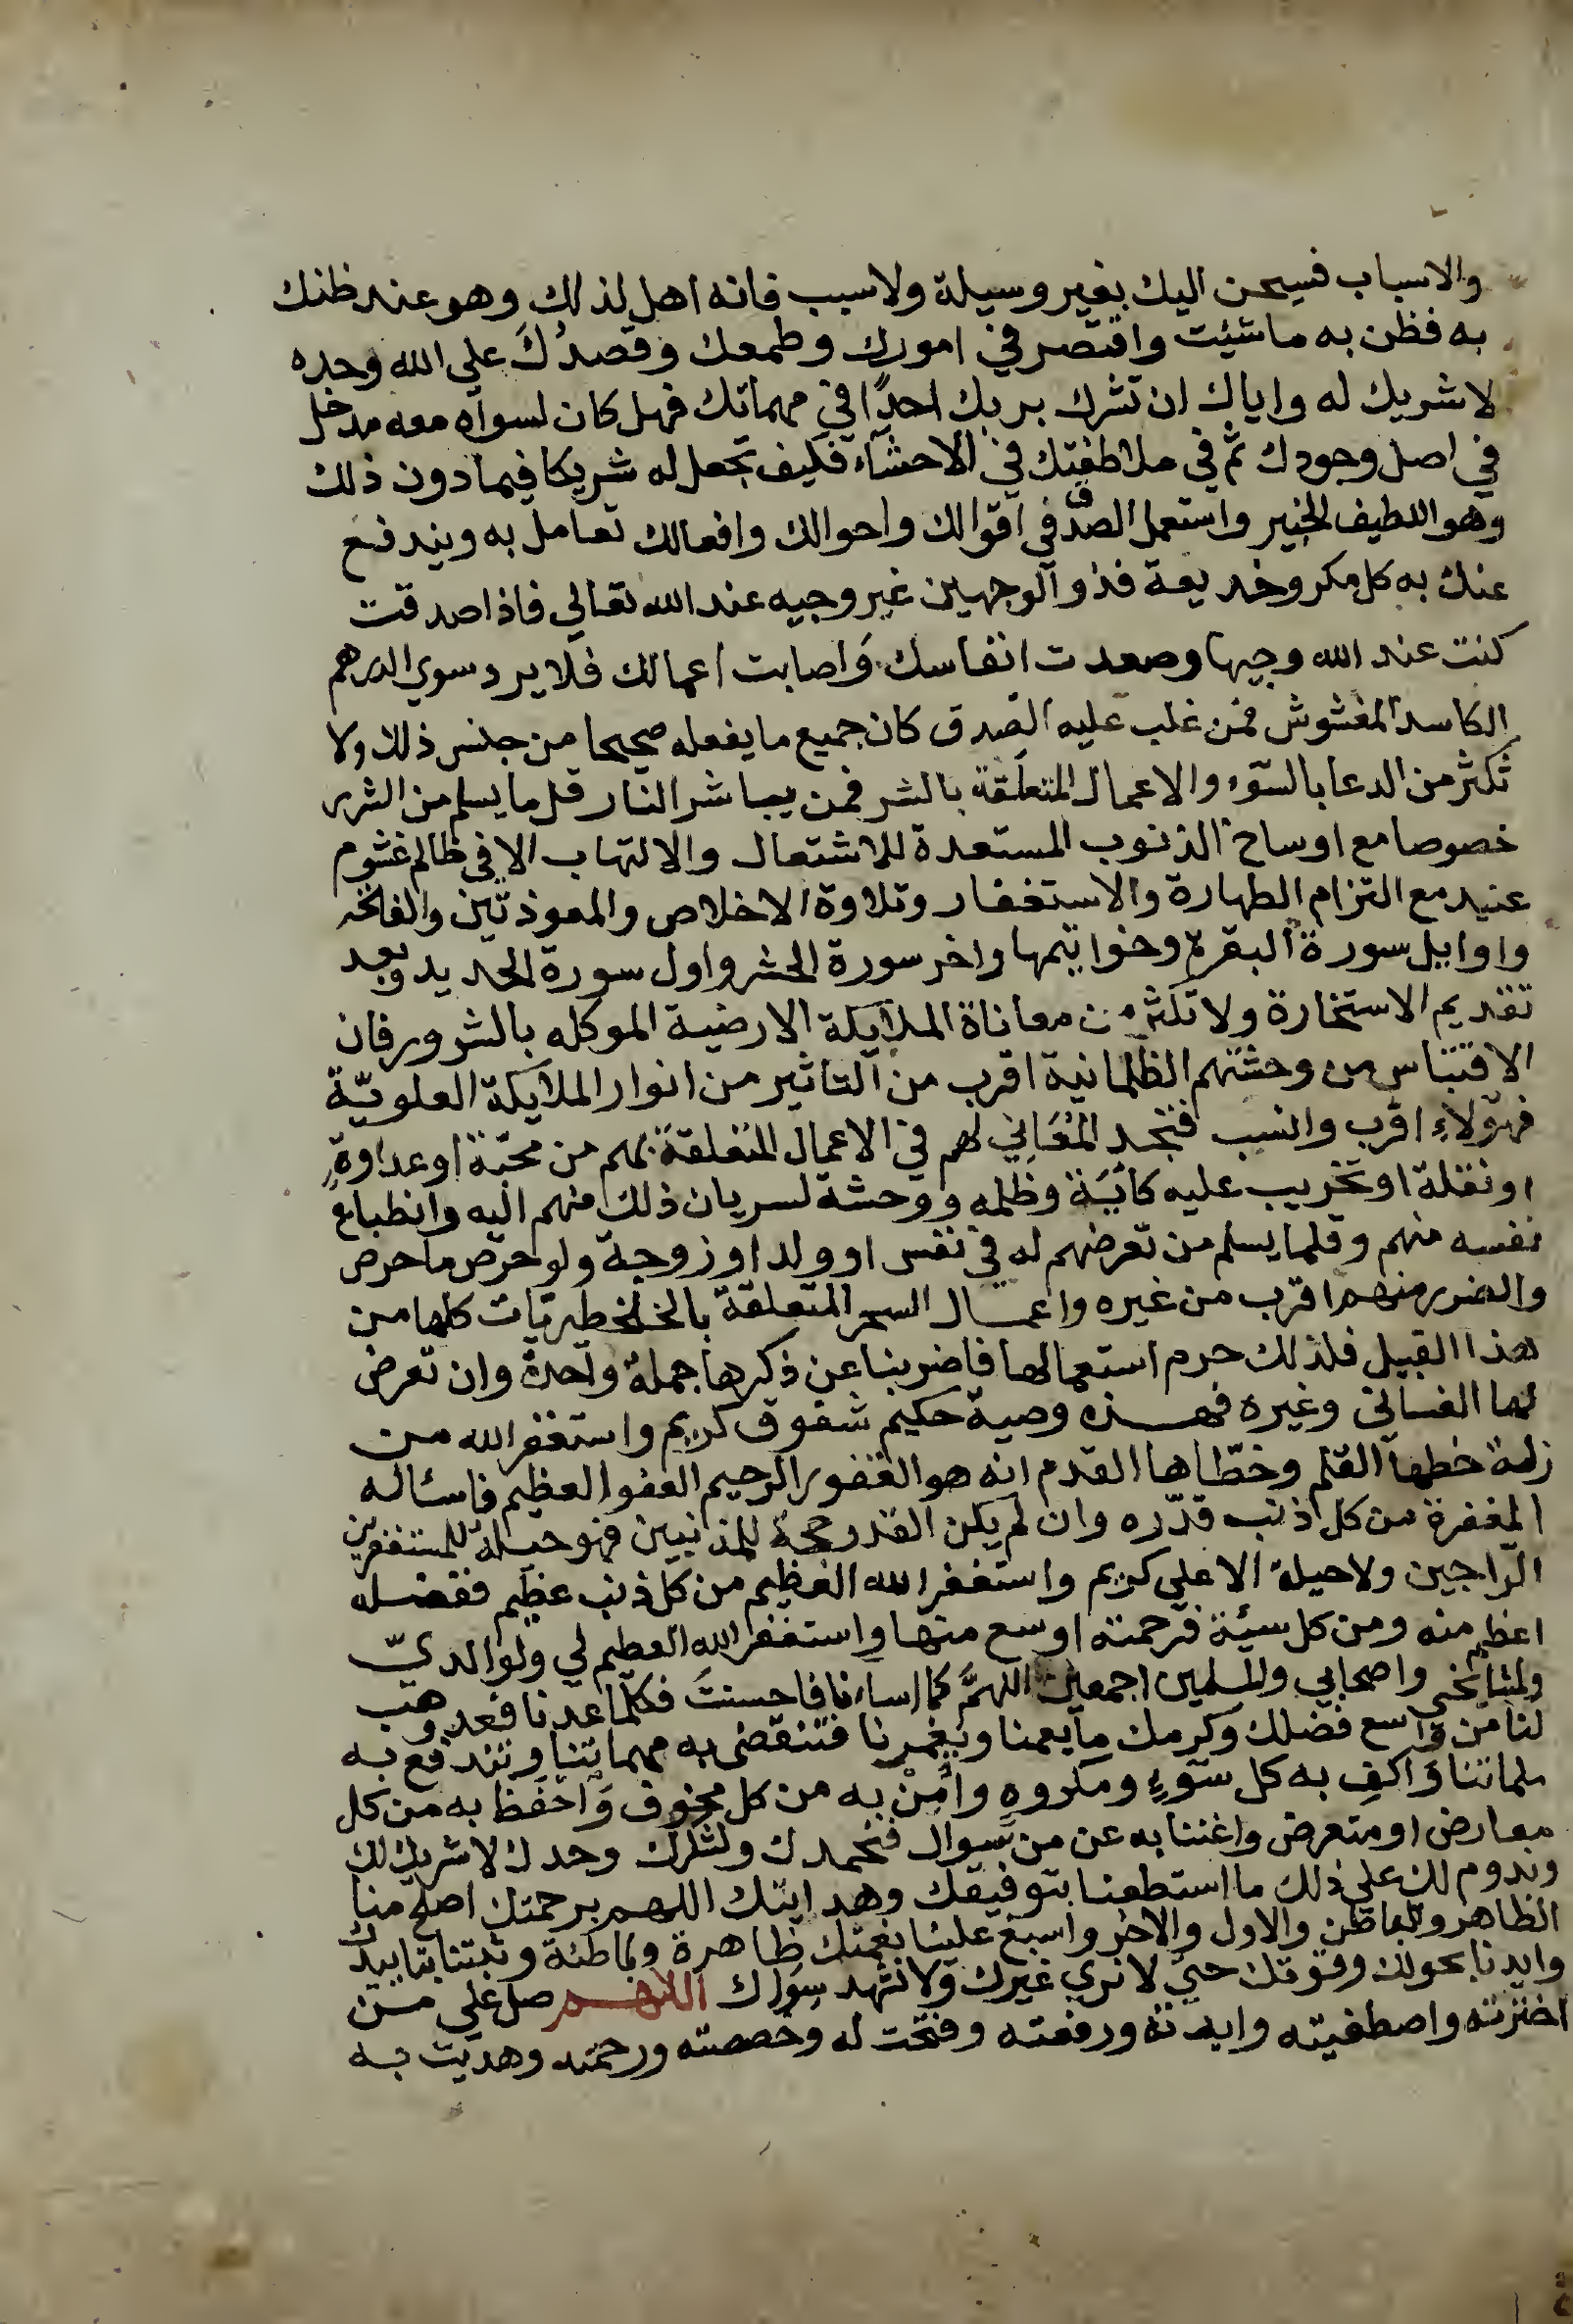 والاسباب فسيحن اليك بغير وسيلة ولاسبب فانه اهل لذلك وهو عند ظنك
به فظن به ماشئت واقتصر في امورك وطمعك وقصدُكَ علي الله وحده
لاشريك له واياك ان تشرك بربك احدًا في مهماتك فهل كان لسواه معه مدخل
في اصل وجودك ثم في ملاطفتك في الاحشآء فكيف تجعل له شريكا فيما دون ذلك
وهو اللطيف الخبير واستعمل الصدق في اقوالك واحوالك وافعالك تعامل به ويندفع
عنك به كل مكر وخديعة فذو الوجهين غير وجيه عند الله تعالي فاذا صدقت
كنت عند الله وجيها وصعدت انفاسك وَاصابت اعمالك فلا يرد سوي الدرهم
الكاسد المغشوش فمن غلب عليه الصدق كان جميع ما يفعله صحيحا من جنس ذلك ولا
تكثر من الدعا بالسّوء والاعمال المتعلقة بالشر فمن يباشر النار قل ما يسلم من الشرر
خصوصا مع اوساخ الذنوب المستعدة للاشتعال والالتهاب الا في ظالم غشوم
عنيد مع التزام الطهارة والاستغفار وتلاوة الاخلاص والمعوذتين والفاتحه
واوايل سورة البقرة وخواتيمها واخر سورة الحشر واول سورة الحديد وبعد
تقديم الاستخارة ولا تكثر من معاناة الملآيكة الارضية الموكله بالشرور فان
الاقتباس من وحشتهم الظلمانية اقرب من التاثير من انوار الملآيكة العلويّة
فهؤلاءِ اقرب وانسب فتجد المُعَاني لهم في الاعمال المتعلقة بهم من محبّة او عداوةٍ
او نقلة او تخريب عليه كأبَة وظلمه ووحشة لسريان ذلك منهم اليه وانطباع
نفسه منهم وقلما يسلم من تعرضهم له في نفس او ولد او زوجة ولو حرص ما حرص
والضرر منهم اقرب من غيره واعمال السحر المتعلقة بالخلخطيريات كلها من
هذا القبيل فلذلك حرم استعمالها فاضربنا عن ذكرها جملة واحدة وان تعرض
لها الغساني وغيره فهذه وصية حكيم شفوق كريم واستغفر الله من
زلة خطها القلم وخطّاها القدم انه هو الغفور الرحيم العفو العظيم فاسئاله
المغفرة من كل ذنب قدّره وان لم يكن القدر حجة للمذنبين فهو حيلة للمستغفرين
الرّاجين ولا حيلة الا علي كريم واستغفر الله العظيم من كل ذنب عظيم ففضله
اعظم منه ومن كل سيئة فرحمته اوسع منها واستغفر الله العظيم لي ولوالديّ
ولمشايخي واصحابي والمسلمين اجمعين اللهمَّ كما اساءنا فاحسنتَ فكلّما عدنا فعد وهب
لنا من وَاسع فضلك وكرمك ما يعمنا ويغمرنا فتنقضى به مهماتنا وتندفع به
ملماتنا وَاكفِ به كل سوءٍ ومكروهٍ وامِنْ به من كل مخوف وَاحفَظ به من كل
معارض او متعرض واغننا به عن من سوال فنحمدك ونشكرك وحدك لا شريك لك
وندوم لك علي ذلك ما استطعنا بتوفيقك وهدايتك اللهم برحمتك اصلح منا
الظاهر والباطن والاول والاخر واسبغ علينا نعمتك ظاهرة وباطنة وثبتنا بتاييدك
وايدنا بحولك وقوتك حتي لا نري غيرك ولا نشهد سِوَاك اللهم صل علي من
اخترته واصطفيته وايدته ورفعته وفتحت له وخصصته ورحمته وهديت به